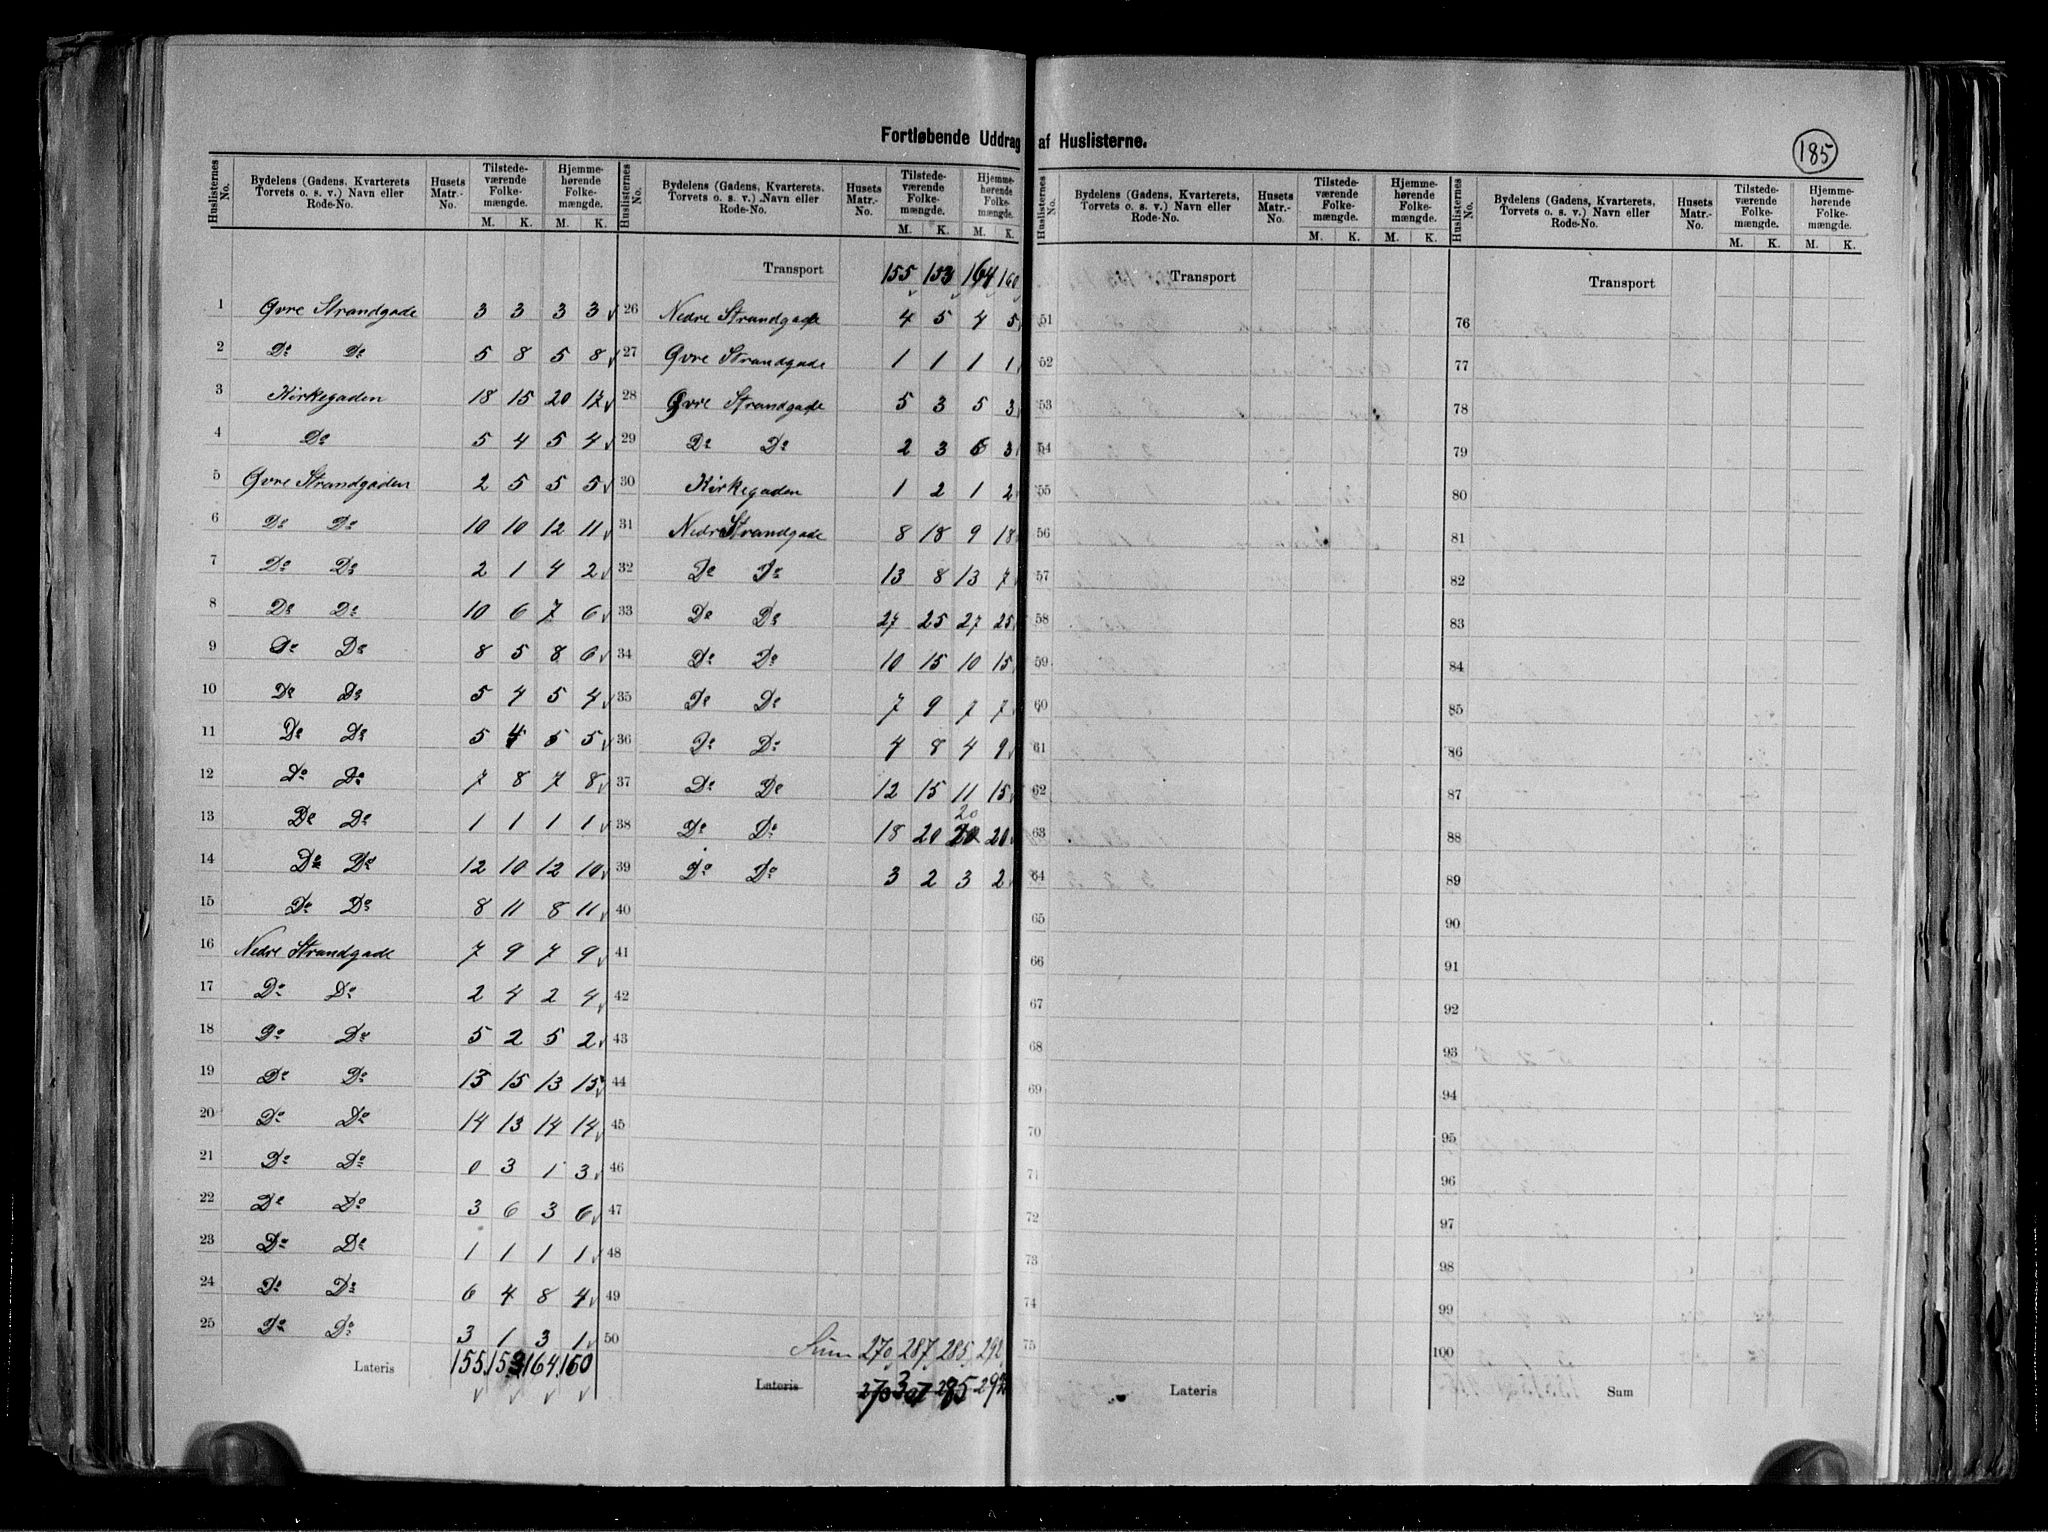 185
Fortløbende Uddrag af Huslisterne.
Huslisternes No. | Bydelens (Gadens, Kvarterets Torvets o. s. v.) Navn eller Rode-No. | Husets Matr.-No. | Tilstedeværende Folkemængde. M. K. | Hjemmehørende Folkemængde. M. K.
1 Øvre Strandgade 3 3 3 3
2 Do Do 5 8 5 8
3 Kirkegaden 18 15 20 17
4 Do 5 4 5 4
5 Øvre Strandgaden 2 5 5 5
6 Do Do 10 10 12 11
7 Do Do 2 1 4 2
8 Do Do 10 6 7 6
9 Do Do 8 5 8 6
10 Do Do 5 4 5 4
11 Do Do 5 4 5 5
12 Do Do 7 8 7 8
13 Do Do 1 1 1 1
14 Do Do 12 10 12 10
15 Do Do 8 11 8 11
16 Nedre Strandgade 7 9 7 9
17 Do Do 2 4 2 4
18 Do Do 5 2 5 2
19 Do Do 13 15 13 15
20 Do Do 14 13 14 14
21 Do Do 0 3 1 3
22 Do Do 3 6 3 6
23 Do Do 1 1 1 1
24 Do Do 6 4 8 4
25 Do Do 3 1 3 1
Lateris 155 153 164 160
Huslisternes No. | Bydelens (Gadens, Kvarterets, Torvets o. s. v.) Navn eller Rode-No. | Husets Matr.-No. | Tilstedeværende Folkemængde. M. K. | Hjemmehørende Folkemængde. M. K.
Transport 155 153 164 160
26 Nedre Strandgade 4 5 4 5
27 Øvre Strandgade 1 1 1 1
28 Øvre Strandgade 5 3 5 3
29 Do Do 2 3 6 3
30 Kirkegaden 1 2 1 2
31 Nedre Strandgade 8 18 9 18
32 Do Do 13 8 13 7
33 Do Do 27 25 27 25
34 Do Do 10 15 10 15
35 Do Do 7 9 7 7
36 Do Do 4 8 4 9
37 Do Do 12 15 11 15
38 Do Do 18 20 20 20
39 Do Do 3 2 3 2
40
41
42
43
44
45
46
47
48
49
50
Sum 270 287 285 292
Lateris 270 307 285 292
Huslisternes No. | Bydelens (Gadens, Kvarterets, Torvets o. s. v.) Navn eller Rode-No. | Husets Matr.-No. | Tilstedeværende Folkemængde. M. K. | Hjemmehørende Folkemængde. M. K.
Transport
51
52
53
54
55
56
57
58
59
60
61
62
63
64
65
66
67
68
69
70
71
72
73
74
75
Lateris
Huslisternes No. | Bydelens (Gadens, Kvarterets, Torvets o. s. v.) Navn eller Rode-No. | Husets Matr.-No. | Tilstedeværende Folkemængde. M. K. | Hjemmehørende Folkemængde. M. K.
Transport
76
77
78
79
80
81
82
83
84
85
86
87
88
89
90
91
92
93
94
95
96
97
98
99
100
Sum